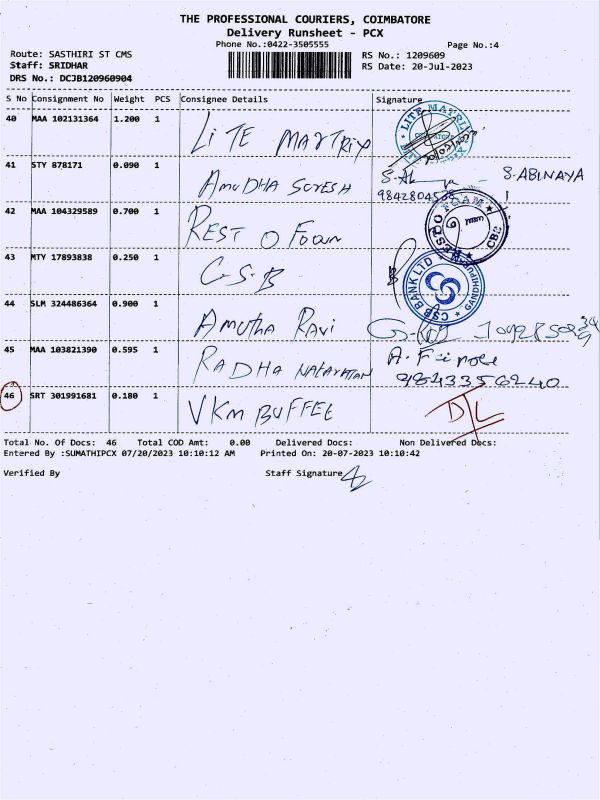 THE PROFESSIONAL COURIERS, COIMBATORE
Delivery Runsheet - PCX
Phone No.:0422-3505555
Page No.:4
Route: SASTHIRI ST CMS
RS No.: 1209609
Staff: SRIDHAR
RS Date: 20-Jul-2023
DRS No.: DCJB120960904
S No Consignment No Weight PCS Consignee Details Signature
40 MAA 102131364 1.200 1 LITE MARTRIX
LITE MATRIX
41 STY 878171 0.090 1 AMUDHA SURESH S. ABINAYA
42 MAA 104329589 0.700 1 REST O Foam
RESTO FOAM CBE
43 MTY 17893838 0.250 1 C.S.B
CSB BANK LTD GANDHIPURAM
44 SLM 324486364 0.900 1 Amutha Ravi
45 MAA 103821390 0.595 1 RADHA NARAYANAN
46 SRT 301991681 0.180 1 VKM BUFFEE D/L
Total No. Of Docs: 46 Total COD Amt: 0.00 Delivered Docs: Non Delivered Docs:
Entered By :SUMATHIPCX 07/20/2023 10:10:12 AM Printed On: 20-07-2023 10:10:42
Verified By Staff Signature